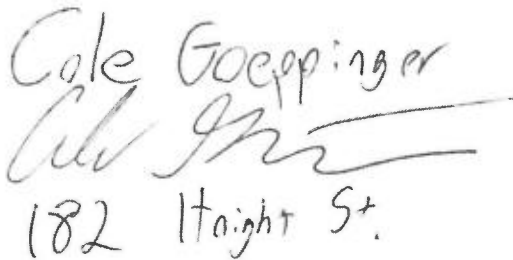 Cole Goeppinger
182 Haight St.